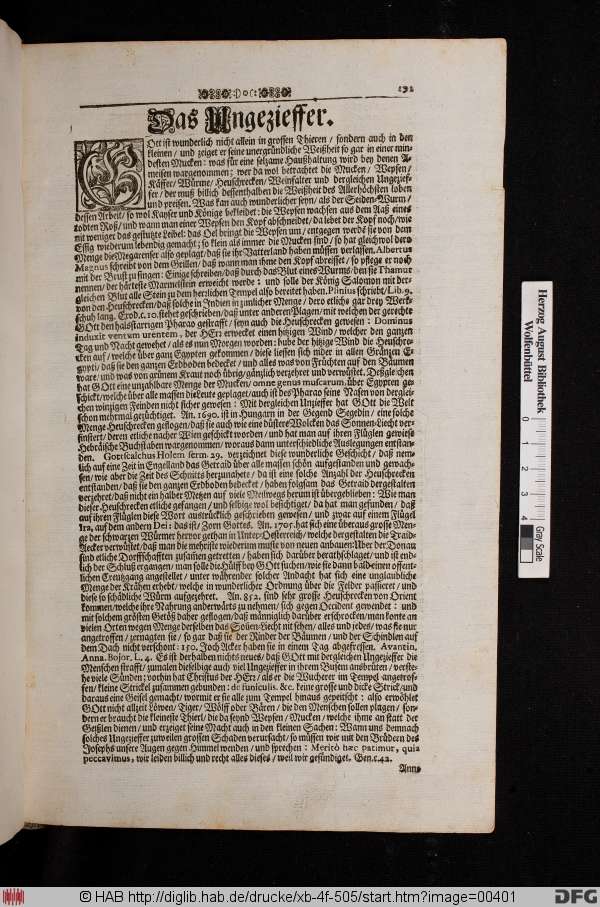 :)o(:
191
Das Ungezieffer.
GOtt ist wunderlich nicht allein in grossen Thieren / sondern auch in den
kleinen / und zeiget er seine unergründliche Weißheit so gar in einer min-
desten Mucken: was für eine selzame Haußhaltung wird bey denen A-
meisen wargenommen; wer da wol betrachtet die Mucken / Wepsen /
Käffer / Würme / Heuschrecken / Weinfalter und dergleichen Ungezief-
fer / der muß billich dessenthalben die Weißheit des Allerhöchsten loben
und preisen. Was kan auch wunderlicher seyn / als der Seiden-Wurm /
dessen Arbeit / so wol Kayser und Könige bekleidet: die Wepsen wachsen aus dem Aaß eines
todten Roß / und wann man einer Wepsen den Kopf abschneidet / da lebet der Kopf noch / wie
mit weniger das gestutzte Leibel: das Oel bringt die Wepsen um / entgegen werde sie von dem
Essig wiederum lebendig gemacht; so klein als immer die Mucken sind / so hat gleichwol dero
Menge die Megarenser also geplagt / daß sie ihr Vatterland haben müssen verlassen. Albertus
Magnus schreibt von dem Grillen / daß wann man ihme den Kopf abreisset / so pflege er noch
mit der Brust zu singen: Einige schreiben / daß durch das Blut eines Wurms / den sie Thamur
nennen / der härteste Marmelstein erweicht werde: und solle der König Salomon mit der-
gleichen Blut alle Stein zu dem herrlichen Tempel also bereitet haben. Plinius schreibt / Lib. 9.
von den Heuschrecken / daß solche in Indien in zimlicher Menge / dero etliche gar drey Werk-
schuh lang. Exod. c. 10. stehet geschrieben / daß unter anderen Plagen / mit welchen der gerechte
GOtt den halsstarrigen Pharao gestrafft / seyn auch die Heuschrecken gewesen: Dominus
induxit ventum urentem, der HErr erwecket einen hitzigen Wind / welcher den ganzen
Tag und Nacht gewehet / als es nun Morgen worden: hube der hitzige Wind die Heuschre-
cken auf / welche über ganz Egypten gekommen / diese liessen sich nider in allen Gränzen E-
gypti / daß sie den ganzen Erdboden bedeckt / und alles was von Früchten auf den Bäumen
ware / und was von grünem Kraut noch übrig / gänzlich verzehret und verwüstet. Deßgleichen
hat GOtt eine unzahlbare Menge der Mucken / omne genus muscarum, über Egypten ge-
schickt / welche über alle massen die Leute geplaget / auch ist des Pharao seine Nasen von derglei-
chen winzigen Feinden nicht sicher gewesen: Mit dergleichen Unzieffer hat GOtt die Welt
schon mehrmal gezüchtiget. An. 1690. ist in Hungarn in der Gegend Segedin / eine solche
Menge Heuschrecken geflogen / daß sie auch wie eine düstere Wolcken das Sonnen-Liecht ver-
finstert / deren etliche nacher Wien geschickt worden / und hat man auf ihren Flüglen gewiese
Hebräische Buchstaben wargenommen / woraus dann unterschiedliche Auslegungen entstan-
den. Gottscalchus Holem serm. 29. verzeichnet diese wunderliche Geschicht / daß nem-
lich auf eine Zeit in Engelland das Getraid über alle massen schön aufgestanden und gewach-
sen / wie aber die Zeit des Schnitts herzunahete / da ist eine solche Anzahl der Heuschrecken
entstanden / daß sie den ganzen Erdboden bedecket / haben folgsam das Getraid dergestalten
verzehret / daß nicht ein halber Metzen auf viele Meilwegs herum ist übergeblieben: Wie man
dieser Heuschrecken etliche gefangen / und selbige wol besichtiget / da hat man gefunden / daß
auf ihren Flüglen diese Wort austrücklich geschrieben gewesen / und zwar auf einem Flügel
Ira, auf dem andern Dei: das ist / Zorn Gottes. An. 1705. hat sich eine überaus grosse Men-
ge der schwarzen Würmer hervor gethan in Unter-Oesterreich / welche dergestalten die Traid-
Aecker verwüstet / daß man die mehriste wiederum muste von neuen anbauen: Uber der Donau
sind etliche Dorffschafften zusamen getretten / haben sich darüber berathschlaget / und ist end-
lich der Schluß ergangen / man solle die Hülff bey GOtt suchen / wie sie dann bald einen offent-
lichen Creutzgang angestellet / unter währender solcher Andacht hat sich eine unglaubliche
Menge der Krähen erhebt / welche in wunderlicher Ordnung über die Felder passieret / und
diese so schädliche Würm aufgezehret. An. 852. sind sehr grosse Heuschrecken von Orient
kommen / welche ihre Nahrung anderwärts zu nehmen / sich gegen Occident gewendet: und
mit solchem grösten Getöß daher geflogen / daß männiglich darüber erschrocken / man konte an
vielen Orten wegen Menge derselben das Sonen-Liecht nit sehen / alles und jedes / was sie nur
angetroffen / zernagten sie / so gar daß sie der Rinder der Bäumen / und der Schindlen auf
dem Dach nicht verschont: 150. Joch Acker haben sie in einem Tag abgefressen. Avantin,
Anna. Bojor, L. 4. Es ist derhalben nichts neues / daß GOtt mit dergleichen Ungezieffer die
Menschen strafft / zumalen dieselbige auch viel Ungezieffer in ihrem Busem ausbrüten / verste-
he viele Sünden; vorhin hat Christus der HErr / als er die Wucherer im Tempel angetrof-
fen / kleine Strickel zusammen gebunden: de funiculis. &c. keine grosse und dicke Strick / und
daraus eine Geisel gemacht / wormit er sie alle zum Tempel hinaus gepeitscht: also erwöhlet
GOtt nicht allzeit Löwen / Tiger / Wölff oder Bären / die den Menschen sollen plagen / son-
dern er braucht die kleineste Thierl / die da seynd Wepsen / Mucken / welche ihme an statt der
Geißlen dienen / und erzeiget seine Macht auch in den kleinen Sachen: Wann uns demnach
solches Ungezieffer zuweilen grossen Schaden verursacht / so müssen wir mit den Brüdern des
Josephs unsere Augen gegen Himmel wenden / und sprechen: Meritò hæc patimur, quia
peccavimus, wir leiden billich und recht alles dieses / weil wir gesündiget. Gen. c. 42.
Anno
Herzog August Bibliothek
Wolfenbüttel
0 1 2 3 4
Gray Scale
© HAB http://diglib.hab.de/drucke/xb-4f-505/start.htm?image=00401
DFG